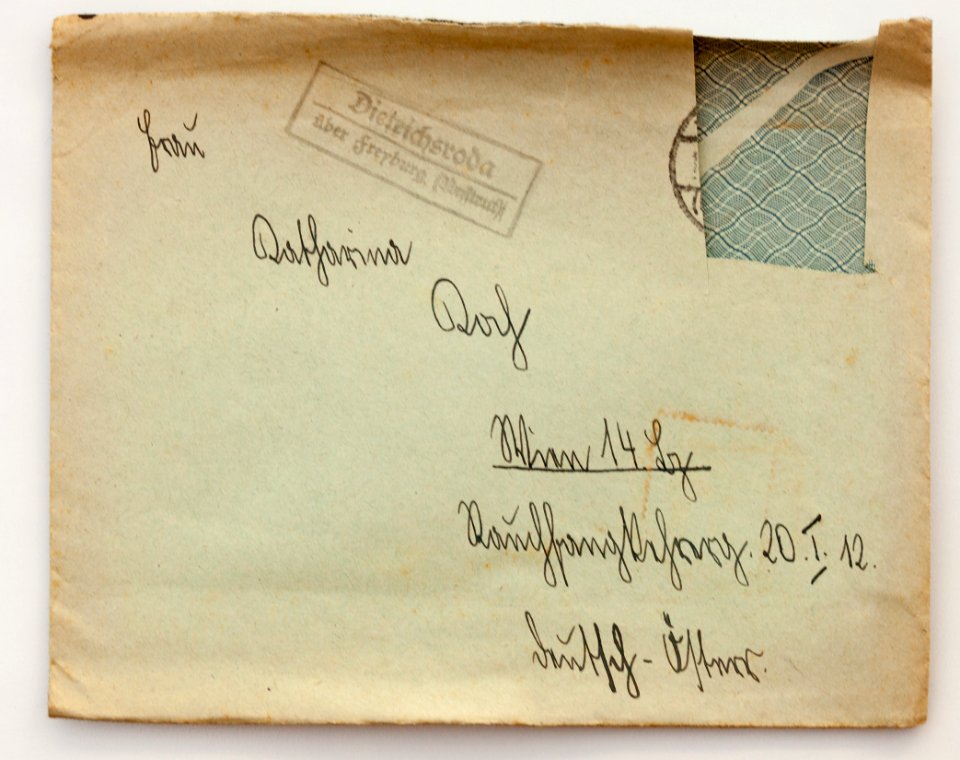 Dietrichsroda
über Freyburg (Unstrut)
Frau
Katharina
Koch
Wien 14. Bz
Rauchfangkehrerg. 20. I. 12.
Deutsch-Österr.